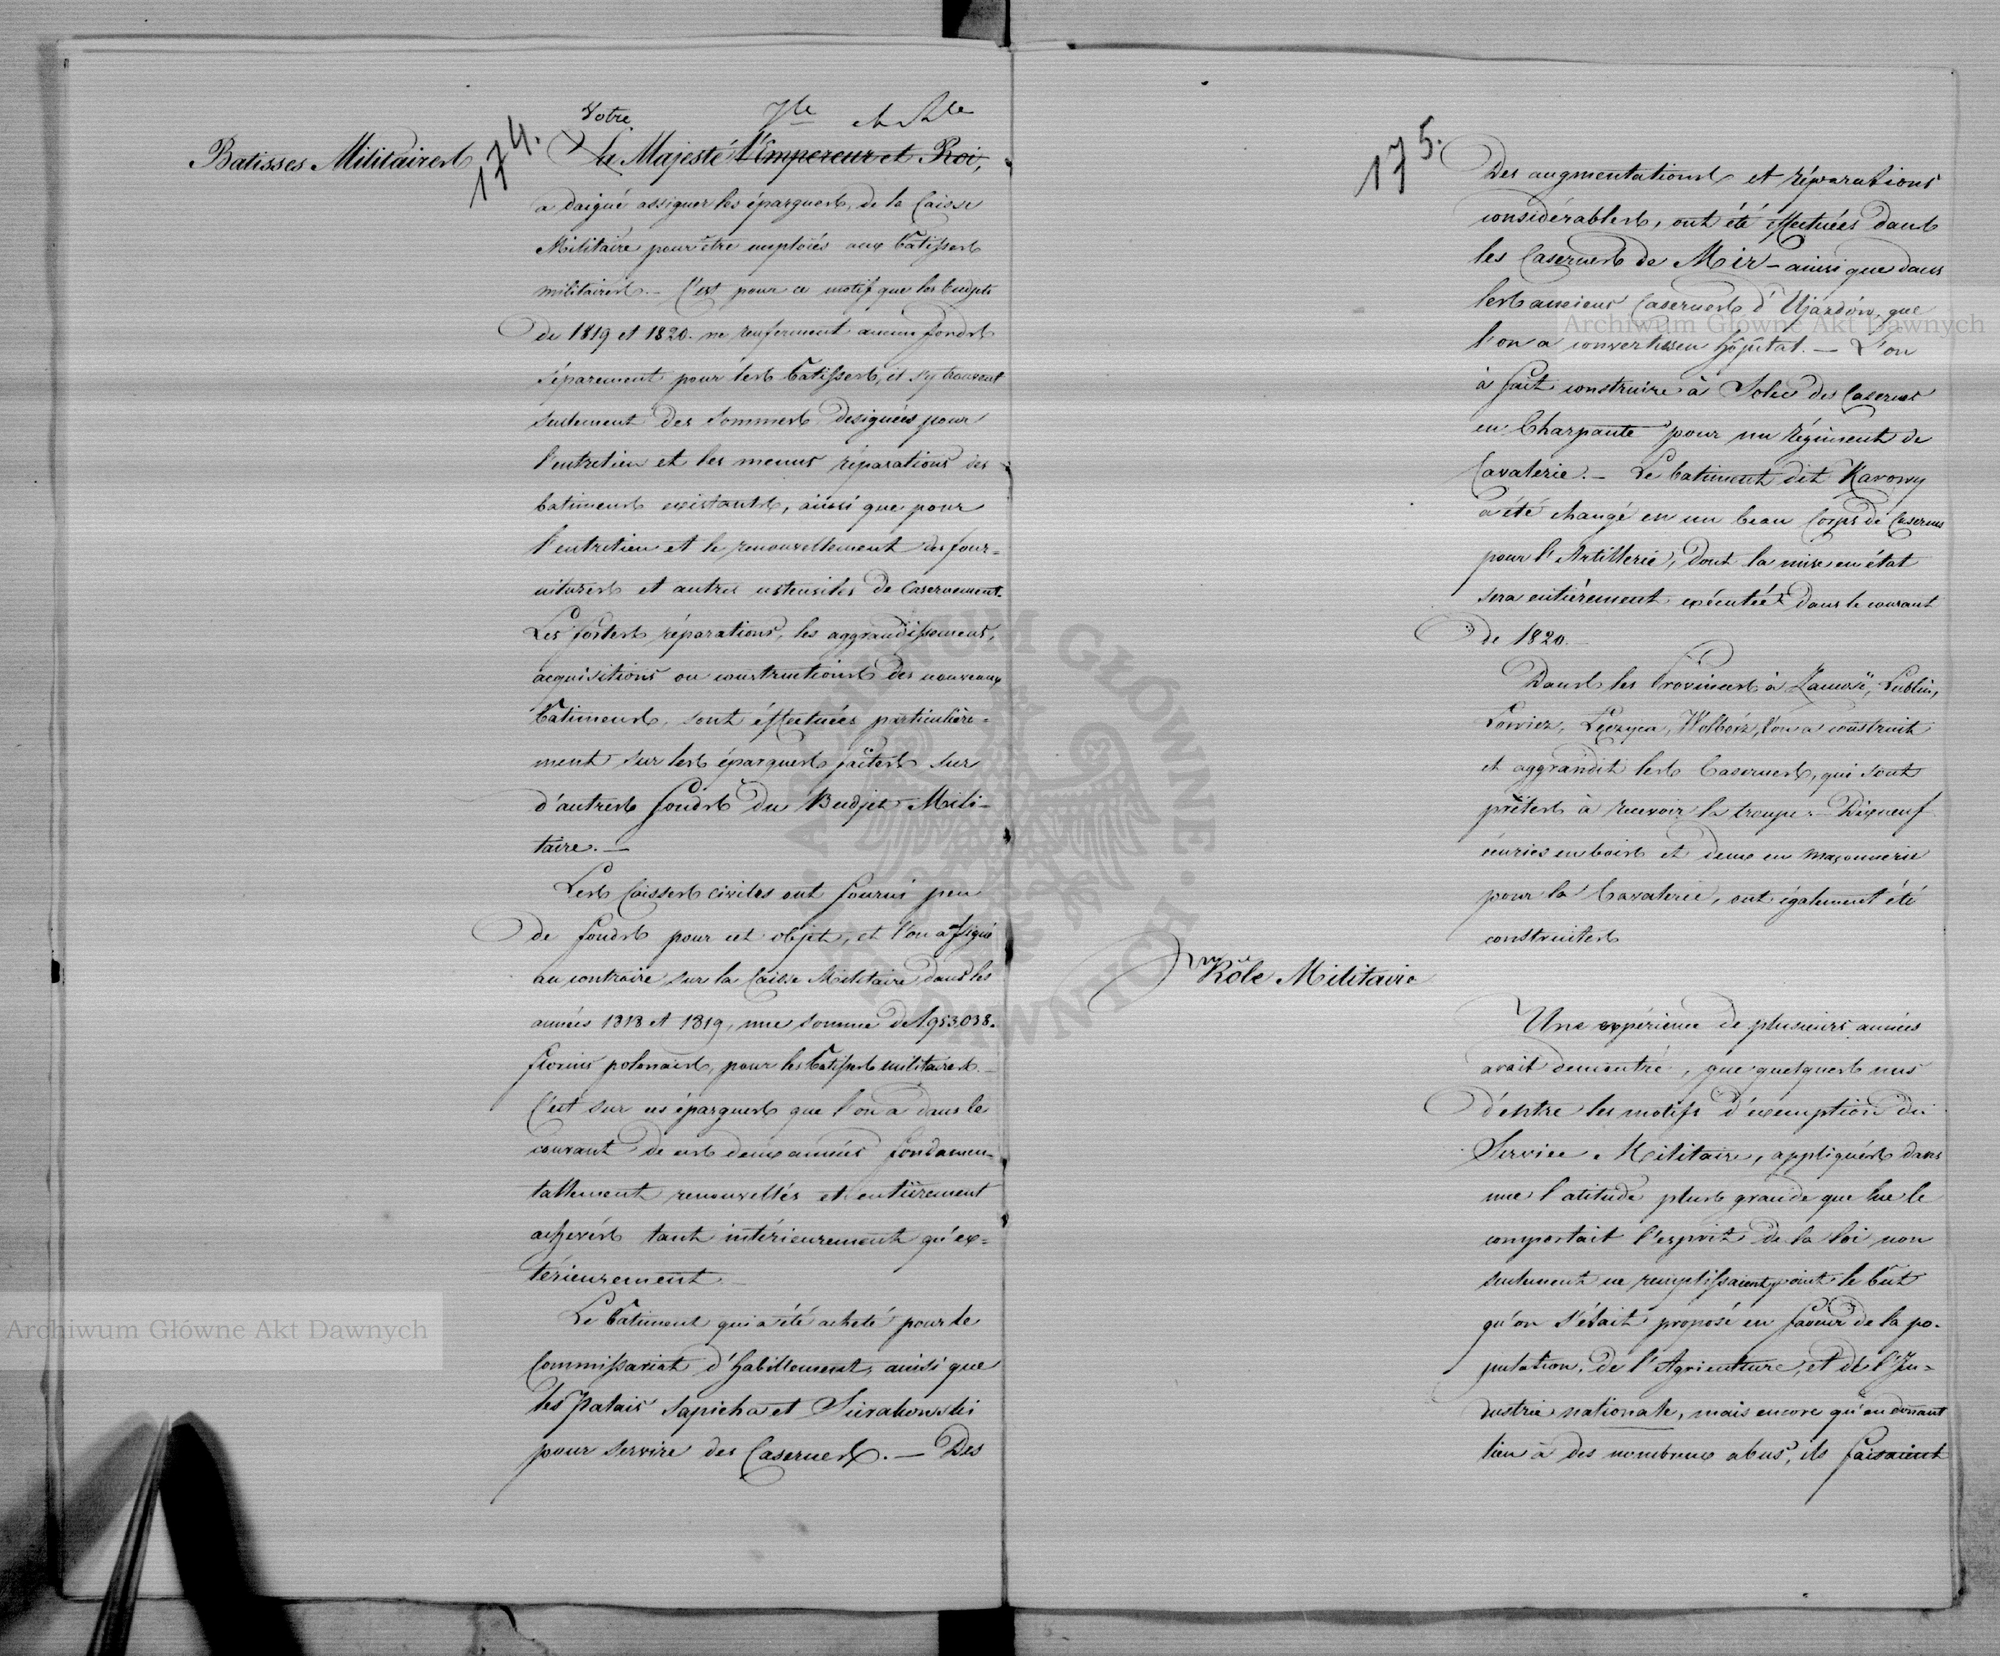 174.
Batisses Militaires
Votre Jle et Rle
La Majesté l'Empereur et Roi,
a daigné assigner les épargnes, de la Caisse
Militaire pour être emploiés aux batisses
militaires. — C'est pour ce motif que les budjets
de 1819 et 1820. ne renferment aucun fonds
séparement pour les batisses, il s'y trouvent
seulement des sommes designées pour
l'entretien et les menus réparations des
batimens existants, ainsi que pour
l'entretien et le renouvellement des four=
nitures et autres ustensiles de Casernement.
Les fortes réparations, les aggrandissemens,
acquisitions ou constructions des nouveaux
batimens, sont éffectuées particulière=
ment sur les épargnes faites sur
d'autres fonds du Budjet Mili-
taire. —
Les Caisses civiles ont fourni peu
de fonds pour cet objet, et l'on assigné
au contraire sur la Caisse Militaire dans les
années 1818 et 1819, une somme de 1,953,038.
florins polonais, pour les batisses militaires. —
C'est sur ces épargnes que l'on a dans le
courant de ces deux années fondamen=
tallement renouvellés et entièrement
achevés tant intérieurement qu'ex=
térieurement. —
Le batiment qui a été acheté pour le
Commissariat d'habillement, ainsi que
les Palais Sapieha et Sierakowski
pour servire des Casernes. — Des
175.
Des augmentations et réparations
considérables, ont été effectuées dans
les Casernes de Mir — ainsi que dans
les anciens Casernes d'Ujazdów, que
l'on a convertis en hôpital. — L'on
à fait construire à Solec des Casernes
en Charpante pour un régiment de
Cavalerie. — Le batiment dit Karowy
a été changé en un beau Corps de Casernes
pour l'Artillerie, dont la mise en état
sera entièrement exécutée dans le courant
de 1820. —
Dans les Provinces à Zamość, Lublin,
Łowicz, Łęczyca, Wolborz, l'on a construit
et aggrandit les Casernes, qui sont
prêtes à recevoir la troupe. — Dixneuf
écuries en bois et deux en maçonnerie
pour la Cavalerie, ont également été
construites
Rôle Militaire
Une expérience de plusieurs années
avait demontré, que quelques uns
d'entre les motifs d'exemption du
Service Militaire, appliqués dans
une l'atitude plus grande que ne le
comportait l'esprit de la loi non
seulement ne remplissaient point le but
qu'on s'était proposé en faveur de la po-
pulation, de l'Agriculture, et de l'In=
dustrie nationale, mais encore qu'en donnant
lieu à des nombreux abus, ils faisaient
Archiwum Główne Akt Dawnych
Archiwum Główne Akt Dawnych